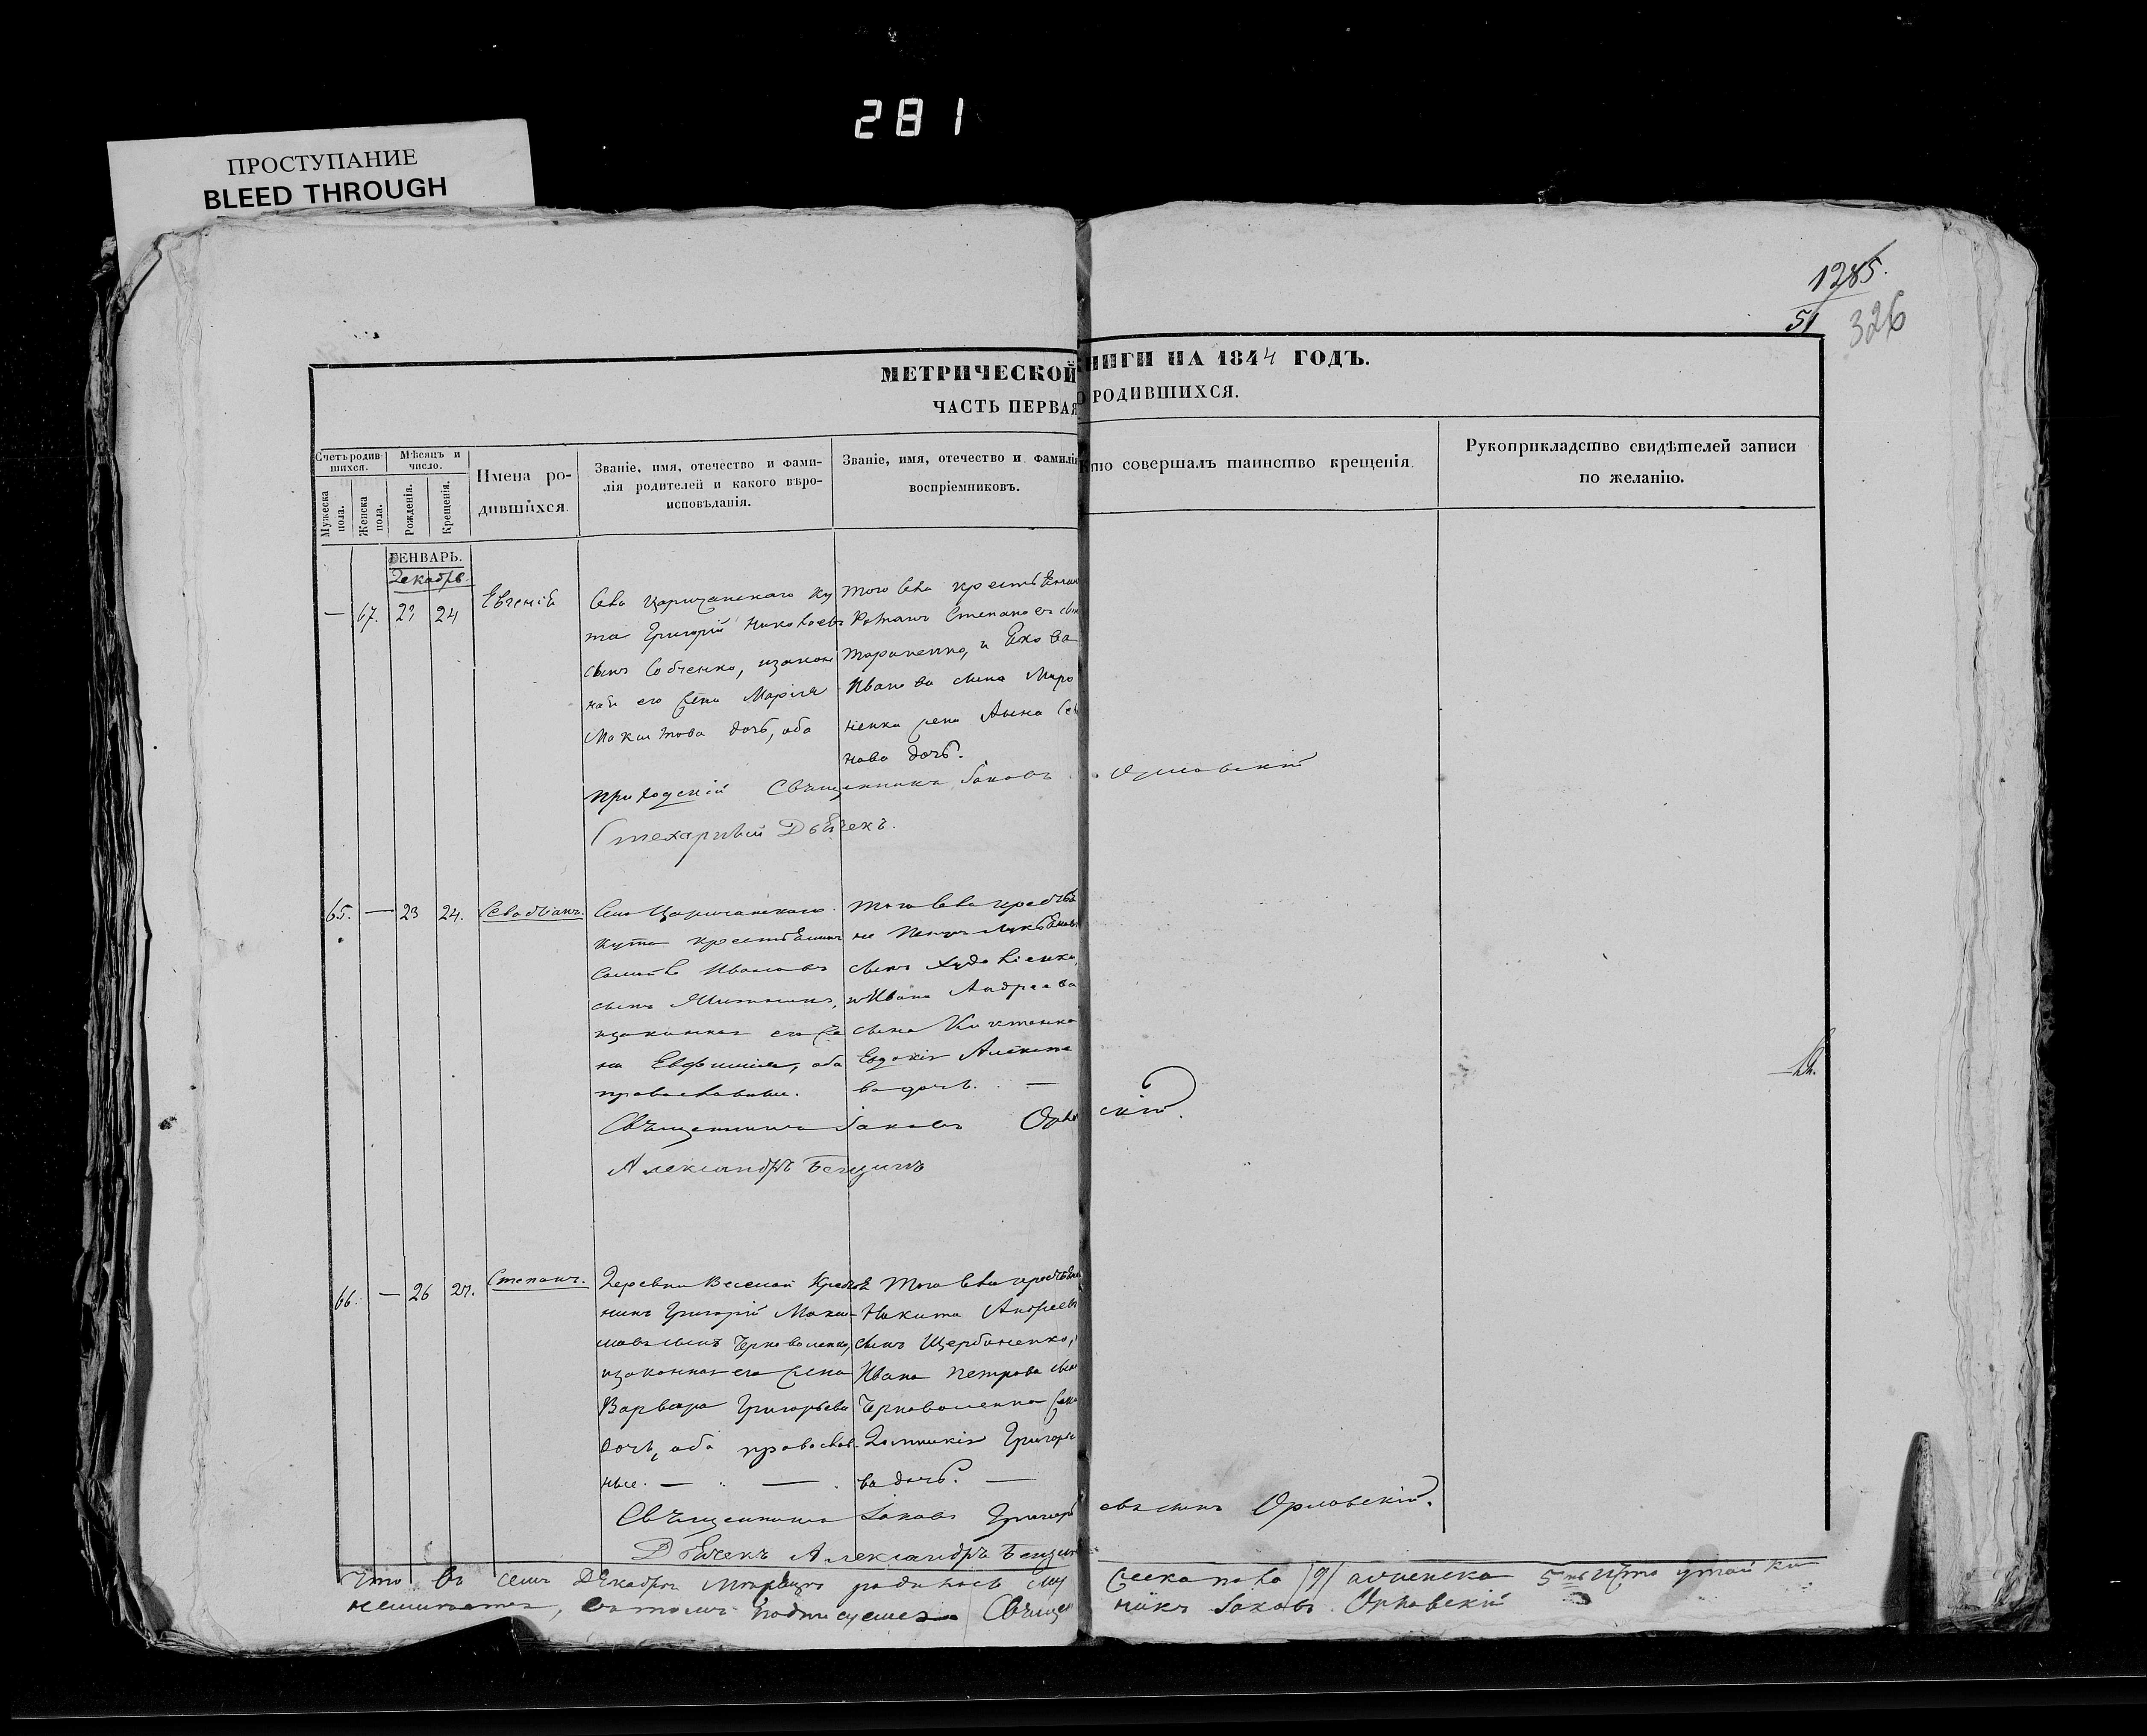 281
ПРОСТУПАНИЕ
BLEED THROUGH
1285.
51
326
МЕТРИЧЕСКОЙ КНИГИ НА 1844 ГОДЪ.
ЧАСТЬ ПЕРВАЯ О РОДИВШИХСЯ.
Счетъ родив-
шихся.
Мужеска пола.
Женска пола.
Мѣсяцъ и
число.
Рожденія.
Крещенія.
Имена ро-
дившихся.
Званіе, имя, отечество и фами-
лія родителей и какого вѣро-
исповѣданія.
Званіе, имя, отечество и фамилія
воспріемниковъ.
Кто совершалъ таинство крещенія.
Рукоприкладство свидѣтелей записи
по желанію.
ГЕНВАРЬ.
Декабрь
— 67. 24 Евгенія
Села Царичанскаго Ку
та Григорій Николаевъ
сынъ Собченко, изакон
ная его жена Марія
дочь, оба
того села крестьянинъ
Романъ Степановъ сынъ
Тараненко, и Якова
Иванова сына Миро
ненка жена Анна
нова дочь.
приходскій Священникъ Іаковъ Орловскій
Стихарный Дьячекъ.
65. — 23 24.
Села Царичанскаго
Кута крестьянинъ
Ивановъ
сынъ
изаконная его же
на Евфимія, оба
православные.
того села крестья
не
сынъ
иИвана Андреева
сына
Евдокія
ва дочь. —
Священникъ Іаковъ Орловскій.
Александръ Бенцинъ
66. — 26 27. Степанъ.
Деревни Веселой Крестья
нинъ Григорій Макси-
мовъ сынъ Черноволенко,
изаконная его жена
Варвара Григорьева
дочь, оба православ-
ные. — . — .
того села крестьян
Никита Андреевъ
сынъ Щербаненко,
Ивана Петрова сына
Черноволенка жена
Домникія Григорье
ва дочь. —
Священникъ Іаковъ Григорьевъ сынъ Орловскій.
Дьячекъ Александръ Бенцинъ
Что въ семъ Декабрѣ мѣсяцѣ родилось муж жескаго пола /9/ аженска 5ть Ичто утайки
неимѣется, вътомъ подписуемся Священ никъ Іаковъ Орловскій